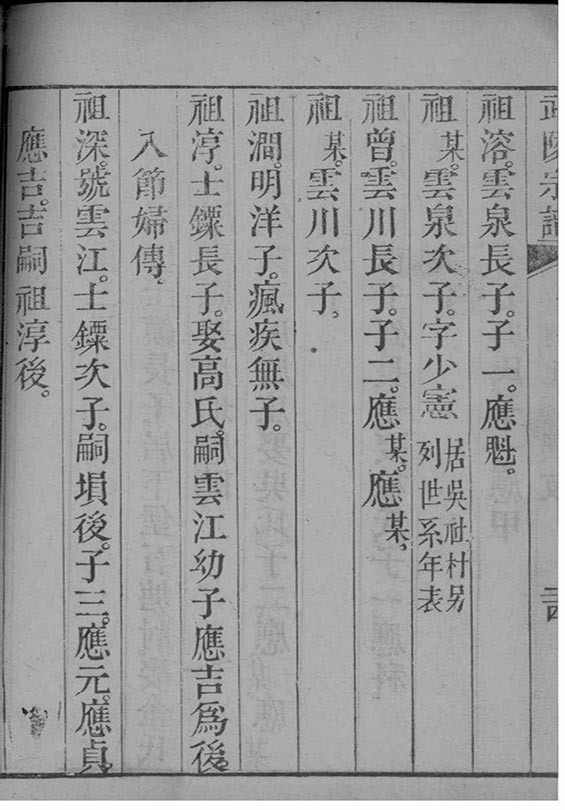 祖溶。雲泉長子。子一。應魁。
祖某。雲泉次子。字少憲居吳社村另列世系年表
祖曾。雲川長子。子二。應某。應某。
祖某。雲川次子。
祖澗。明洋子。瘋疾無子。
祖淳。士鏢長子。娶高氏。嗣雲江幼子應吉爲後。
入節婦傳。
祖深。號雲江。士鏢次子。嗣塤後。子三。應元。應貞
應吉。吉嗣祖淳後。